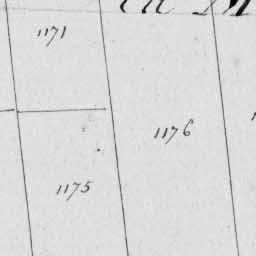 1171
1176
1175